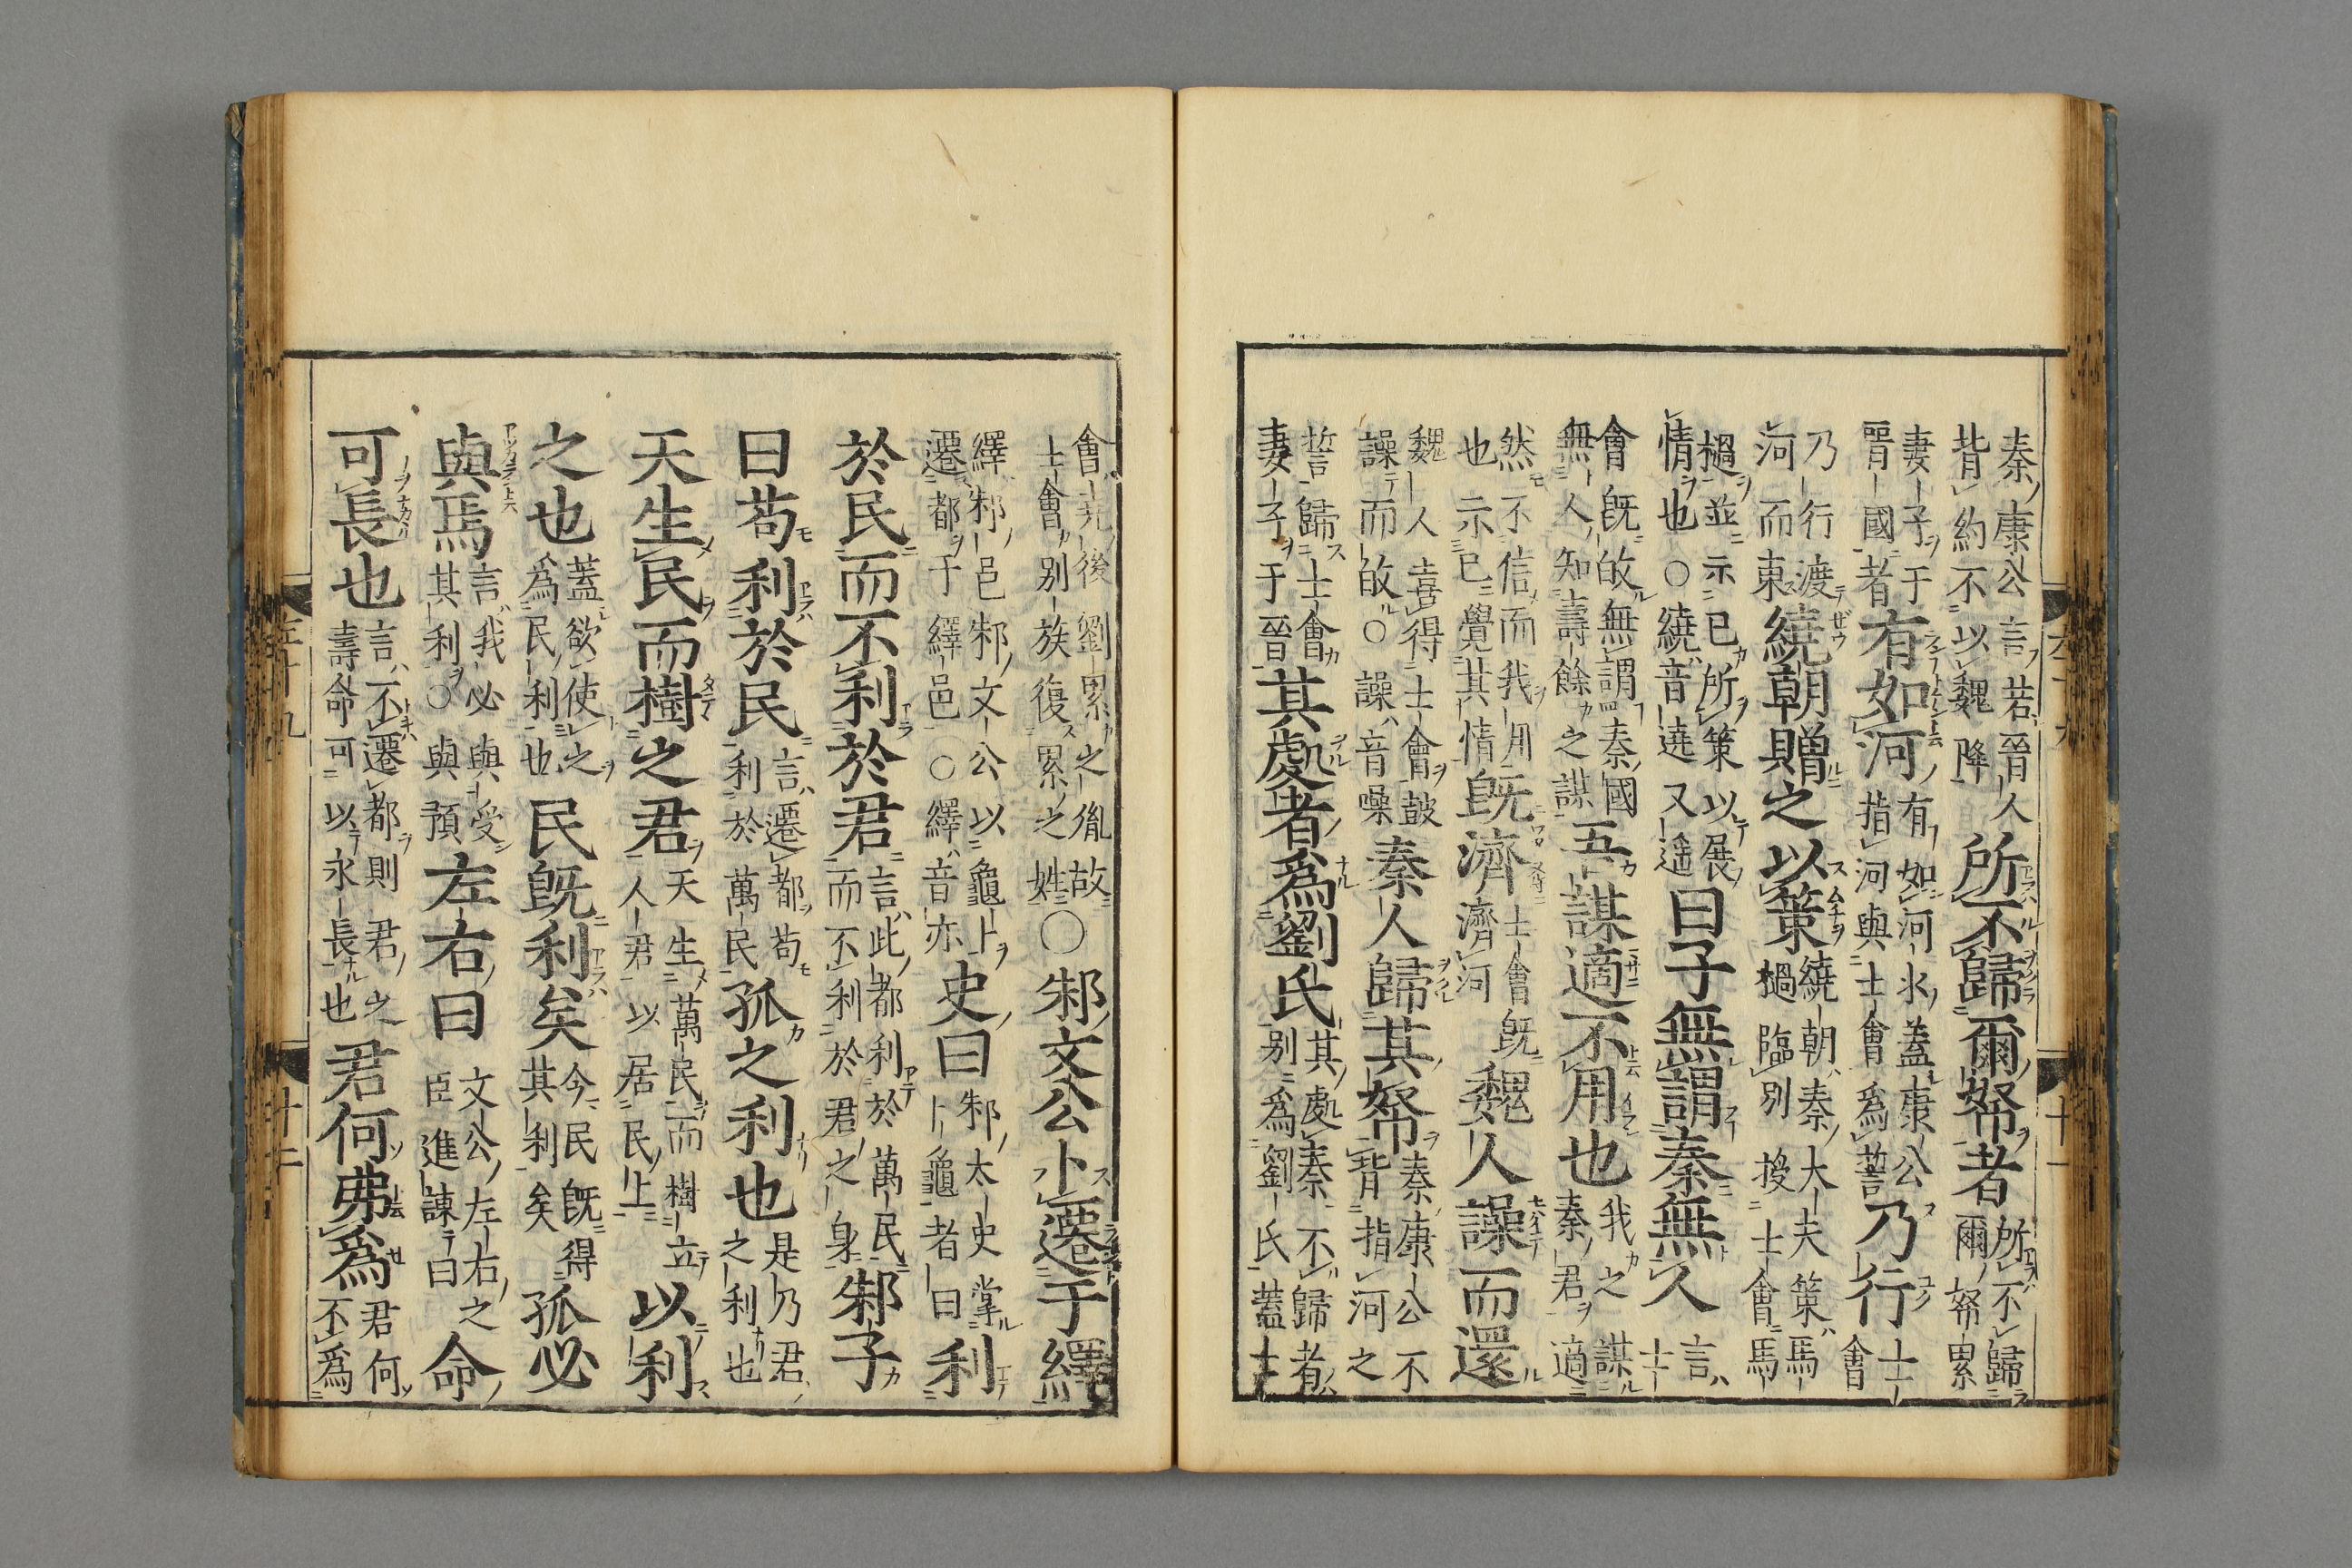 秦康公言若晉人背約不以魏降所不歸爾帑者所不歸爾帑累
妻子于晉國者有如河有如河水蓋康公指河與士會爲誓乃行士會
乃行渡河而東繞朝贈之以策繞朝秦大夫策馬檛臨別授士會馬
檛並示已所策以展情也○繞音遶又遥曰子無謂秦無人言士
會既敀無謂秦國無人知壽餘之謀吾謀適不用也我之謀秦君適
然不信而我用也示已覺其情既濟士會既濟河魏人譟而還
魏人喜得士會皷譟而敀○譟音噪秦人歸其帑秦康公不背指河之
誓歸士會妻子于晉其處者爲劉氏其處秦不歸者別爲劉氏蓋士
會堯後劉累之胤故士會別族復累之姓○邾文公卜遷于繹
繹邾邑邾文公以龜卜遷都于繹邑○繹音亦史曰邾太史掌卜龜者曰利
於民而不利於君言此都利於萬民而不利於君之身邾子
曰苟利於民言遷都苟利於萬民孤之利也是乃君之利也
天生民而樹之君天生萬民而樹立人君以居民上以利
之也蓋欲使之爲民利也民既利矣今民既得其利矣孤必
與焉言我必與受其利○與預左右曰文公左右之臣進諫曰命
可長也言不遷都則君之壽命可以永長也君何弗爲君何不爲